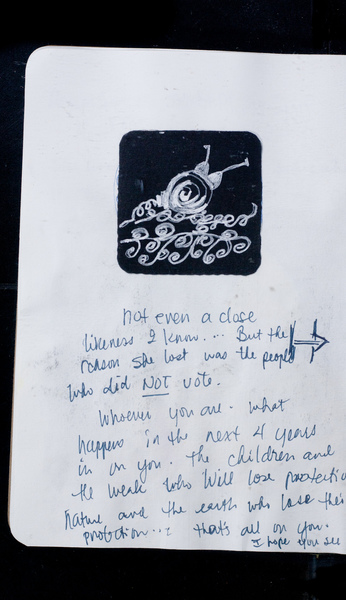 not even a close
likeness I know.... But the
reason she lost was the people
who did NOT vote.
Whoever you are. What
happens in the next 4 years
is on you. The children and
the weak who will lose protectio
nature and the earth who lose their
protection...: that's all on you.
I hope you see